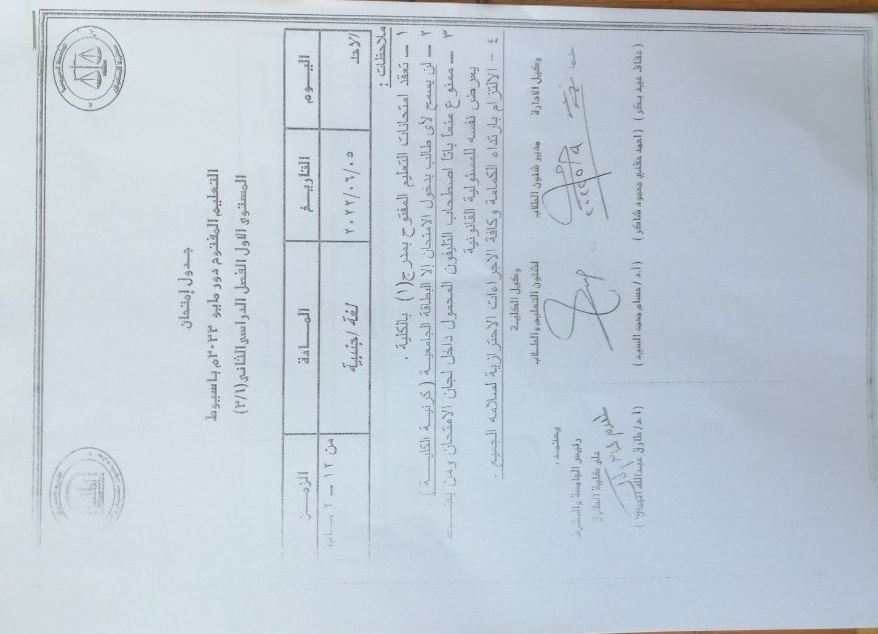 جدول إمتحان
التعليم المفتوح دور مايو ٢٠٢٢م باسيوط
المستوى الاول الفصل الدراسى الثانى (٣/١)
اليوم التاريخ المادة الزمن
الاحد ٢٠٢٢/٠٦/٠٥ لغة اجنبية من ١٢ – ٢
ملاحظات :
١ – تعقد امتحانات التعليم المفتوح بمدرج (١) بالكلية .
٢ – لن يسمح لأى طالب بدخول الامتحان إلا البطاقة الجامعية ( كرنية الكلية ) .
٣ – ممنوع منعا باتا اصطحاب التليفون المحمول داخل لجان الامتحان ومن
يعرض نفسه للمسئولية القانونية
٤ – الالتزام بارتداء الكمامة وكافة الاجراءات الاحترازية لسلامه الجميع .
وكيل الكلية
وكيل الادارة مدير شئون الطلاب لشئون التعليم والطلاب
يعتمد ،
رئيس الجامعة والمشرف
على كلية الحقوق
( عفاف عبد بكر ) ( احمد محمود شاكر ) ( أ.د/ حسام محمد السيد ) ( أ.د/ طارق عبدالله )